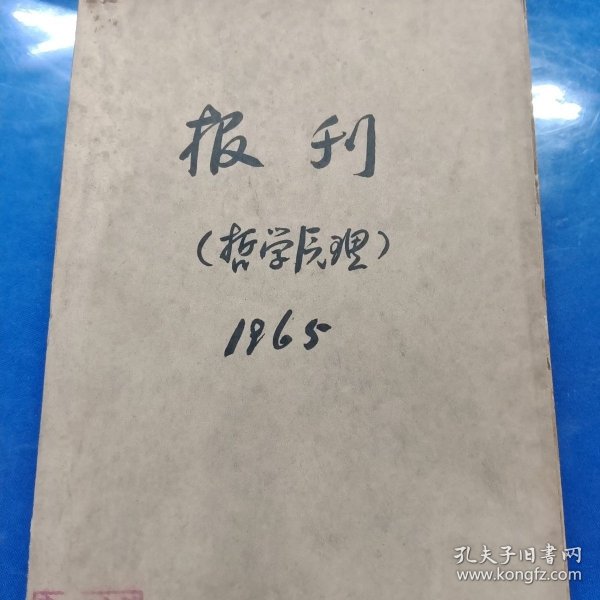 报刊
(哲学原理)
1965
孔夫子旧书网
www.kongfz.com